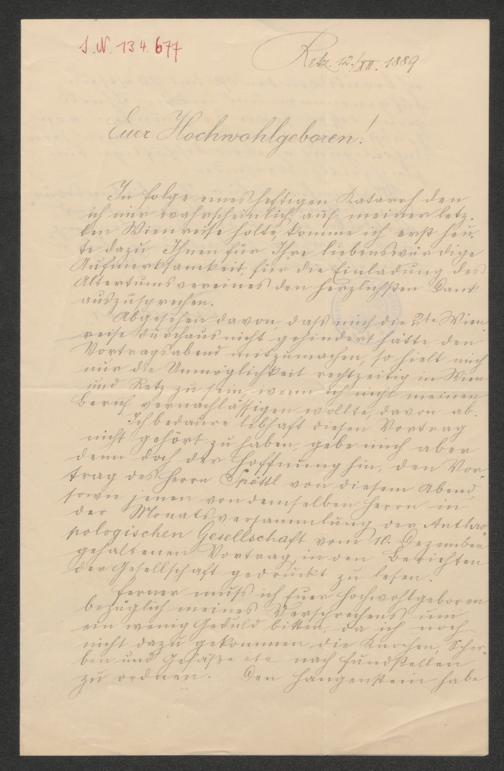 I. N. 134.677
Retz 12./XII. 1889
Euer Hochwohlgeboren!
In Folge eines heftigen Katarrh den
ich mir wahrscheinlich auf meiner letz-
ten Wienreise holte, komme ich erst heu-
te dazu Ihnen für Ihre liebenswürdige
Aufmerksamkeit, für die Einladung des
Altertumsvereines den herzlichsten Dank
auszusprechen.
Abgesehen davon, daß mich die 2te Wien-
reise durchaus nicht gehindert hätte den
Vortragsabend mitzumachen, so hielt mich
nur die Unmöglichkeit rechtzeitig in Wien
und Retz zu sein, wenn ich nicht meinen
Beruf vernachlässigen wollte, davon ab.
Ich bedaure lebhaft diesen Vortrag
nicht gehört zu haben, gebe mich aber
denn doch der Hoffnung hin, den Vor-
trag des Herrn Spöttl von diesem Abend
sowie jenen von demselben Herrn in
der Monatsversammlung der Anthro-
pologischen Gesellschaft vom 10. Dezember
gehaltenen Vortrag, in den Berichten
der Gesellschaft gedruckt zu lesen.
Ferner muß ich Euer Hochwohlgeboren
bezüglich meines Versprechens um
ein wenig Geduld bitten, da ich noch
nicht dazu gekommen, die Knochen, Scher-
ben und Gefäße etc nach Fundstellen
zu ordnen. Den Hangenstein habe